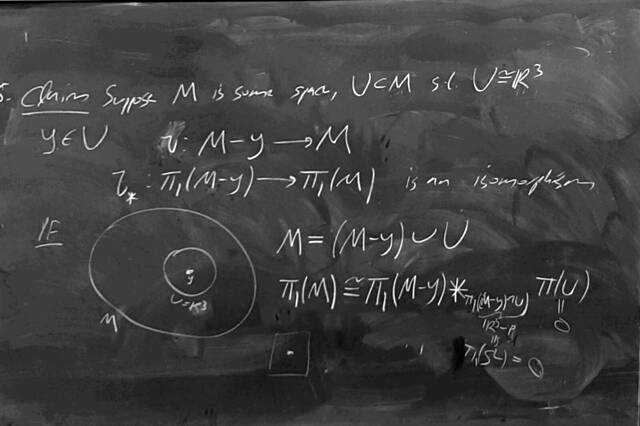 5. Claim Suppose M is some space, U⊂M s.t. U≅ℝ³
y∈U τ: M-y → M
τ_*: π₁(M-y) → π₁(M) is an isomorphism
PF
M = (M-y) ∪ U
π₁(M) ≅ π₁(M-y) *_{π₁((M-y)∩U)} π(U)
y
U=ℝ³
M
ℝ³-
=
0
π₁(S²) = 0